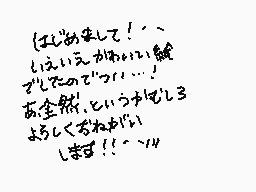 はじめまして！``
いえいえかわいい絵
でしたのでつい…！
あ、全然、というかむしろ
よろしくおねがい
します!!``〃